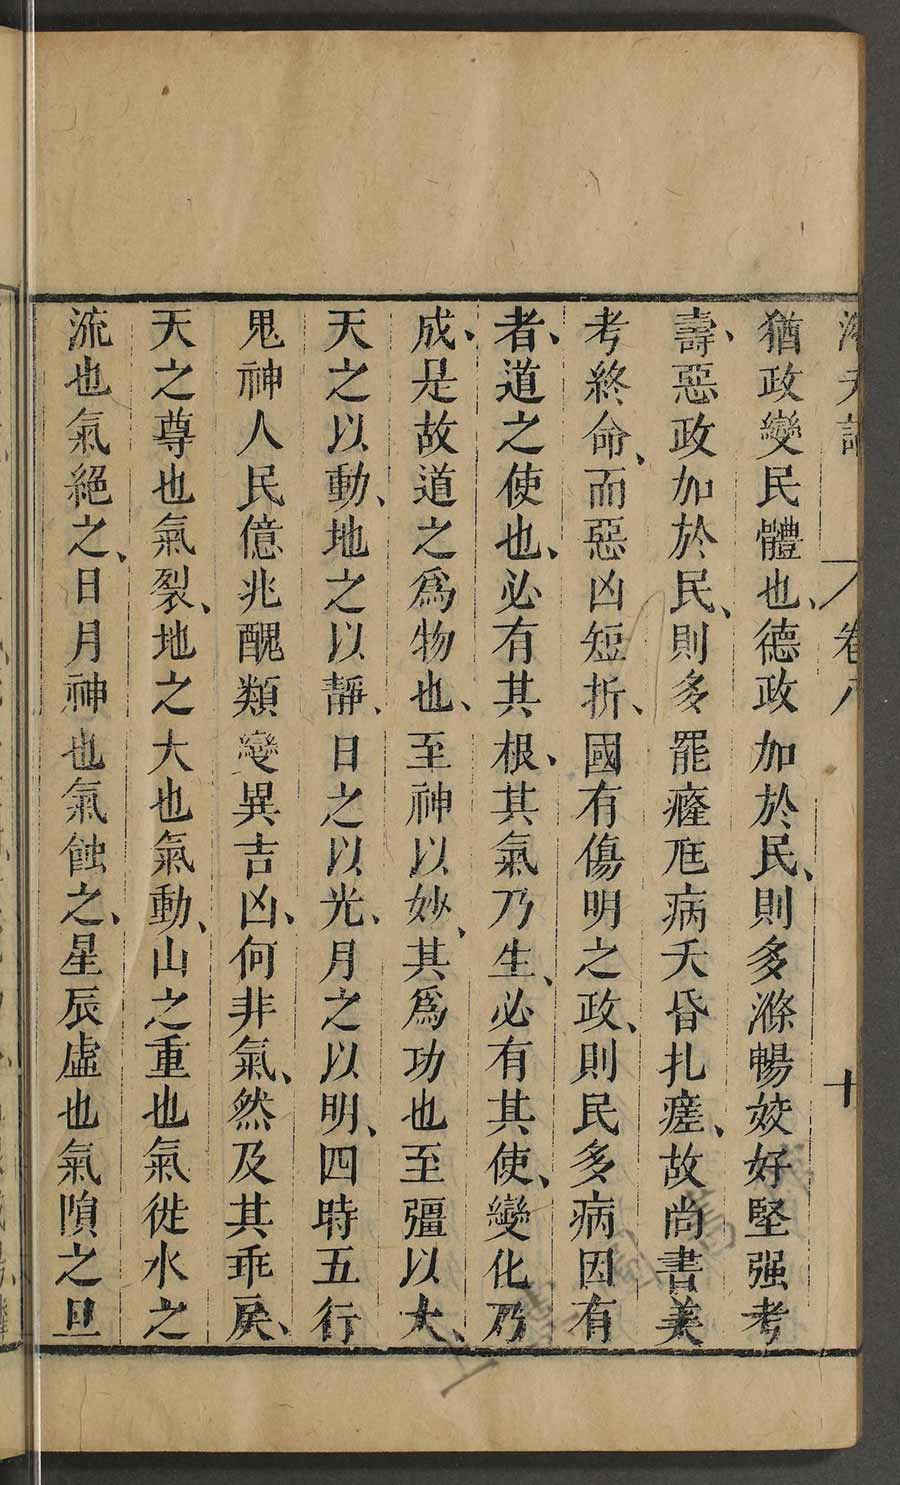 猶政變民體也、德政加於民、則多滌暢姣好堅强考
壽、惡政加於民、則多罷癃尫病夭昏扎瘥、故尚書美
考終命、而惡凶短折、國有傷明之政、則民多病因有
者、道之使也、必有其根、其氣乃生、必有其使、變化乃
成、是故道之爲物也、至神以妙、其爲功也至彊以大、
天之以動、地之以靜、日之以光、月之以明、四時五行
鬼神人民億兆醜類變異吉凶、何非氣、然及其乖戾、
天之尊也氣裂、地之大也氣動、山之重也氣徙水之
流也氣絕之、日月神也氣蝕之、星辰虛也氣隕之旦
卷八
十